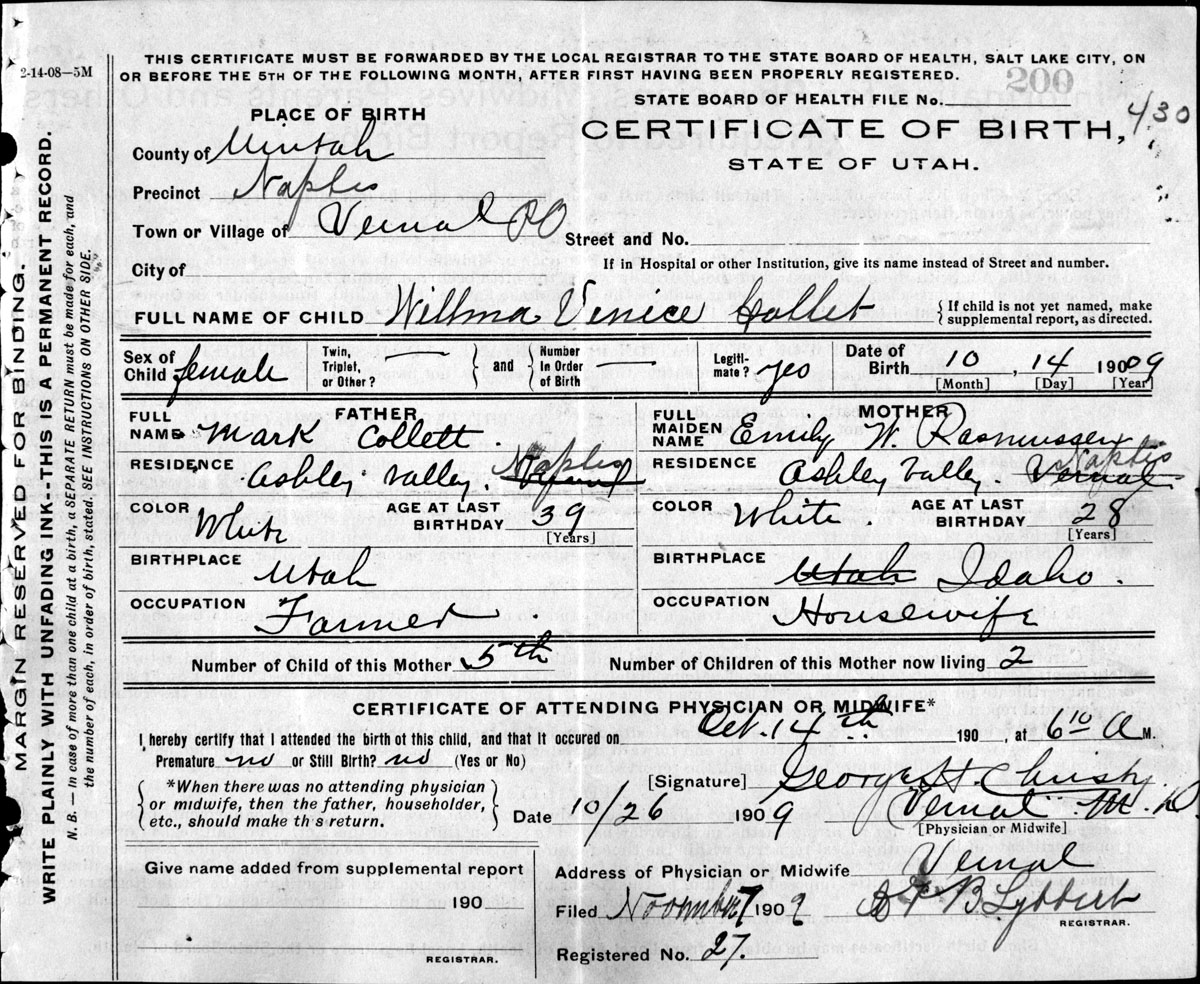 2-14-08—5M
THIS CERTIFICATE MUST BE FORWARDED BY THE LOCAL REGISTRAR TO THE STATE BOARD OF HEALTH, SALT LAKE CITY, ON
OR BEFORE THE 5TH OF THE FOLLOWING MONTH, AFTER FIRST HAVING BEEN PROPERLY REGISTERED.
STATE BOARD OF HEALTH FILE No. 200
430
PLACE OF BIRTH
CERTIFICATE OF BIRTH,
STATE OF UTAH.
County of Uintah
Precinct Naples
Town or Village of Vernal PO
Street and No.
City of
If in Hospital or other Institution, give its name instead of Street and number.
FULL NAME OF CHILD Willma Venice Collet
{ If child is not yet named, make
supplemental report, as directed.
Sex of Child female
Twin, Triplet, or Other? —
and
Number In Order of Birth —
Legiti-mate? yes
Date of Birth 10, 14 190 09
[Month] [Day] [Year]
FATHER
FULL NAME Mark Collett.
RESIDENCE Ashley Valley. Naples
COLOR White
AGE AT LAST BIRTHDAY 39
[Years]
BIRTHPLACE Utah
OCCUPATION Farmer
MOTHER
FULL MAIDEN NAME Emily W. Rasmussen
RESIDENCE Ashley Valley. Vernal Naples
COLOR White.
AGE AT LAST BIRTHDAY 28
[Years]
BIRTHPLACE Utah Idaho.
OCCUPATION Housewife
Number of Child of this Mother 5th
Number of Children of this Mother now living 2
CERTIFICATE OF ATTENDING PHYSICIAN OR MIDWIFE*
I hereby certify that I attended the birth of this child, and that it occured on Oct. 14th 190 9, at 6 10 A M.
Premature no or Still Birth? no (Yes or No)
*When there was no attending physician
or midwife, then the father, householder,
etc., should make th's return.
[Signature] George H. Christy
Date 10/26 1909 Vernal M.D
[Physician or Midwife]
Give name added from supplemental report
190
REGISTRAR.
Address of Physician or Midwife Vernal
Filed November 7 1909 B Lybbert
REGISTRAR.
Registered No. 27.
MARGIN RESERVED FOR BINDING.
WRITE PLAINLY WITH UNFADING INK--THIS IS A PERMANENT RECORD.
N. B. — In case of more than one child at a birth, a SEPARATE RETURN must be made for each, and
the number of each, in order of birth, stated. SEE INSTRUCTIONS ON OTHER SIDE.